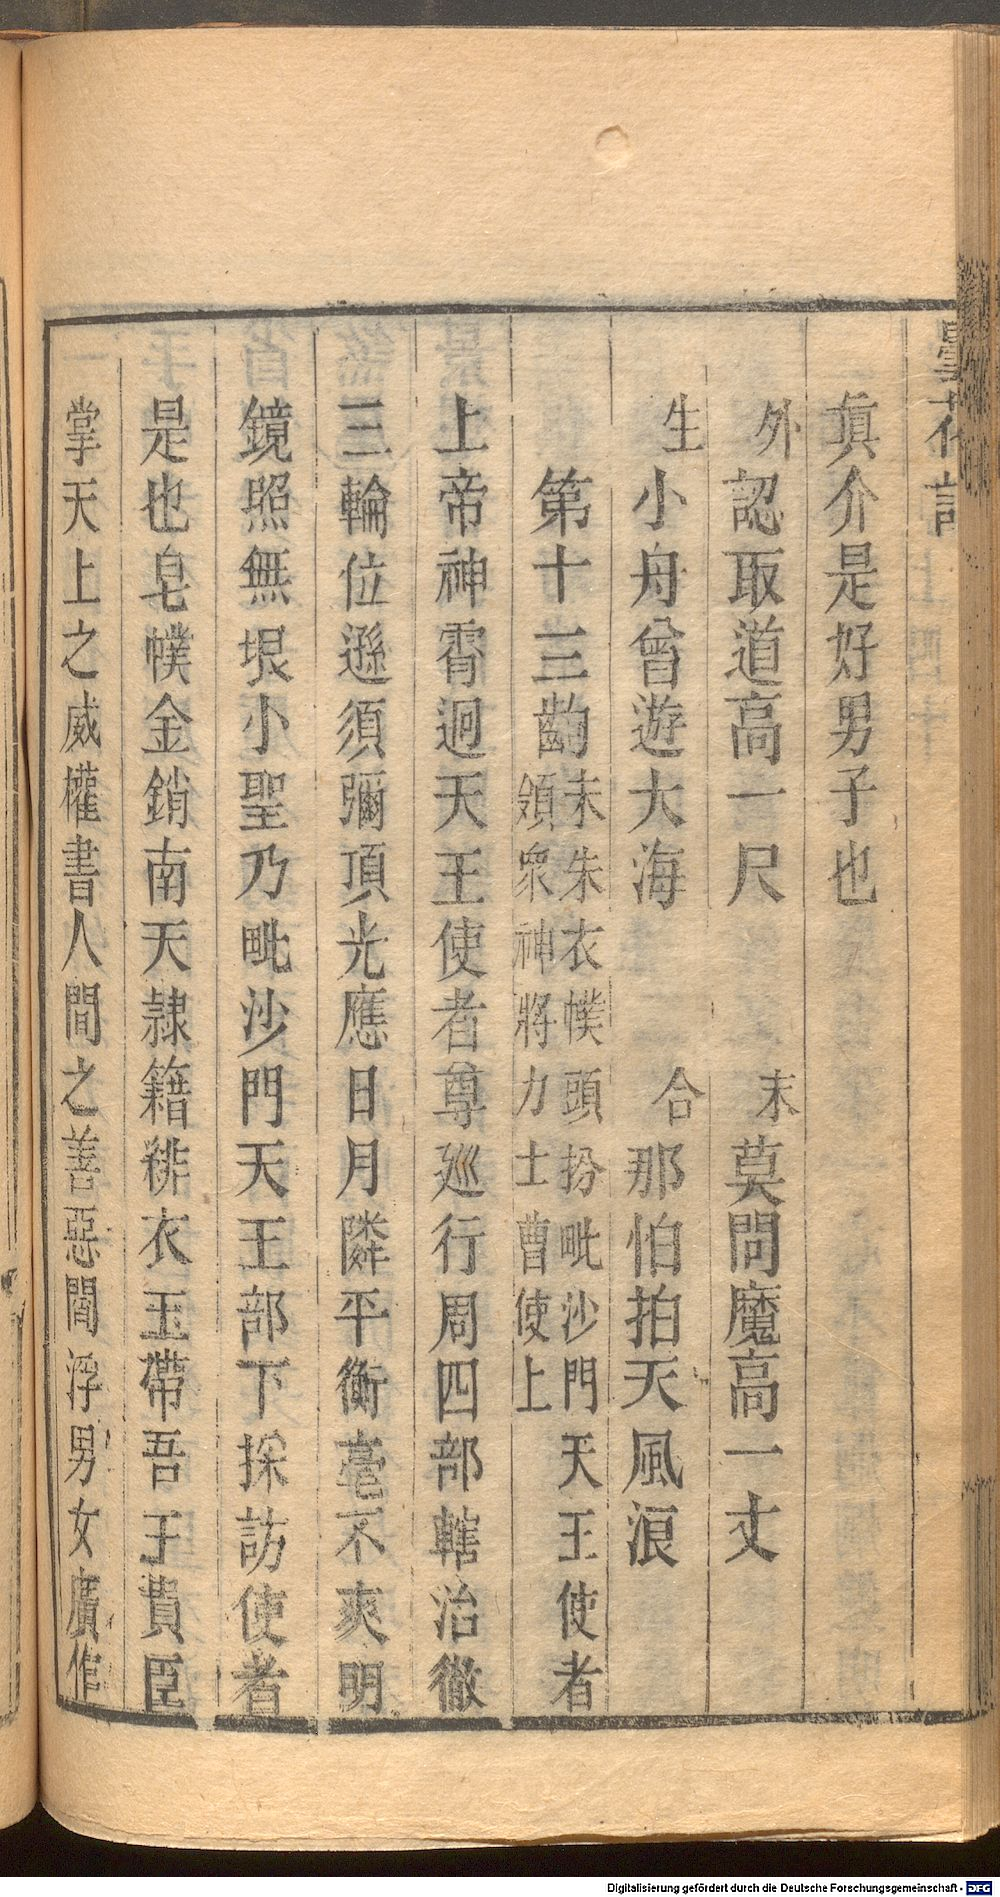 曇花記
眞介是好男子也
外 認取道高一尺 末 莫問魔高一丈
生 小舟曾遊大海 合 那怕拍天風浪
第十三齣 末朱衣幞頭扮毗沙門天王使者
領衆神將力士曹使上
上帝神霄迥天王使者尊巡行周四部轄治徹
三輪位遜須彌頂光應日月隣平衡毫不爽明
鏡照無垠小聖乃毗沙門天王部下採訪使者
是也皂幞金銷南天隷籍緋衣玉帶吾王貴臣
掌天上之威權書人間之善惡閻浮男女廣作
Digitalisierung gefördert durch die Deutsche Forschungsgemeinschaft - DFG